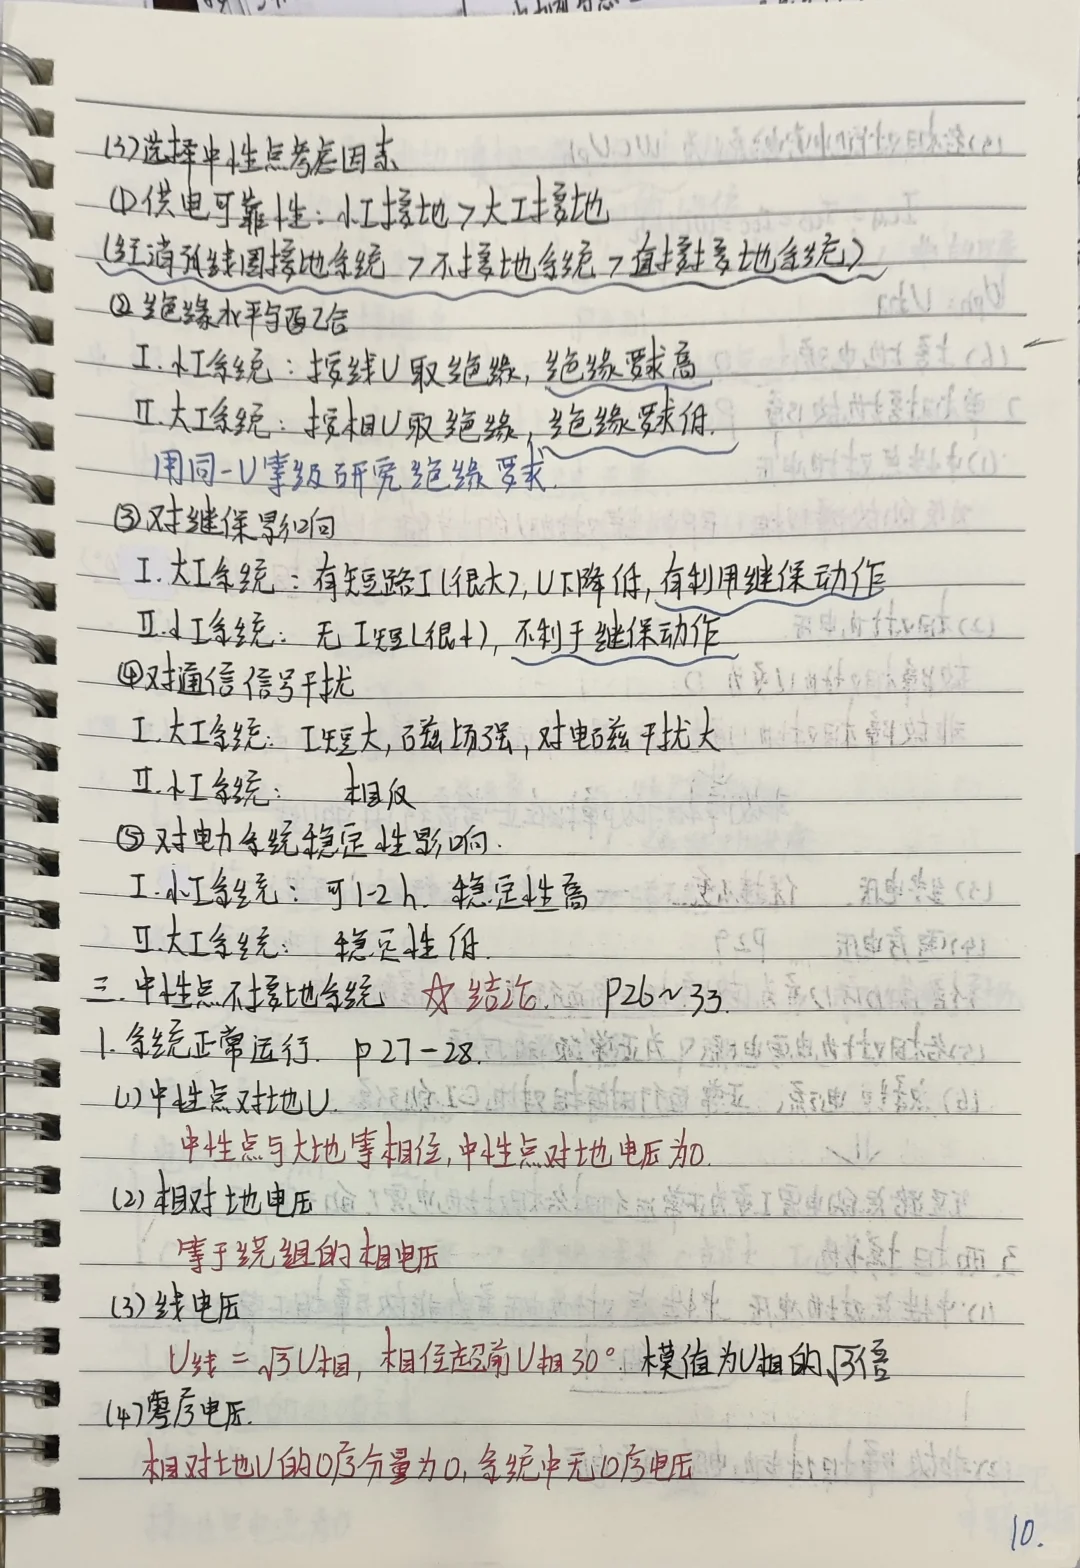 (3)选择中性点考虑因素
①供电可靠性：小I接地>大I接地
(经消弧线圈接地系统>不接地系统>直接接地系统)
②绝缘水平与配合
I.小I系统：按线U取绝缘,绝缘要求高
II.大I系统：按相U取绝缘,绝缘要求低.
用同一U等级研究绝缘要求.
③对继保影响
I.大I系统：有短路I(很大),U下降低,有利用继保动作
II.小I系统：无I短(很小),不利于继保动作
④对通信信号干扰
I.大I系统：I短大,磁场强,对电磁干扰大
II.小I系统：相反
⑤对电力系统稳定性影响.
I.小I系统：可1-2h.稳定性高
II.大I系统：稳定性低.
三.中性点不接地系统 ☆结论. P26~33.
1.系统正常运行. P27-28.
(1)中性点对地U.
中性点与大地等相位,中性点对地电压为0.
(2)相对地电压
等于绕组的相电压
(3)线电压
U线=√3U相,相位超前U相30°.模值为U相的√3倍
(4)零序电压.
相对地U的0序分量为0,系统中无0序电压
10.